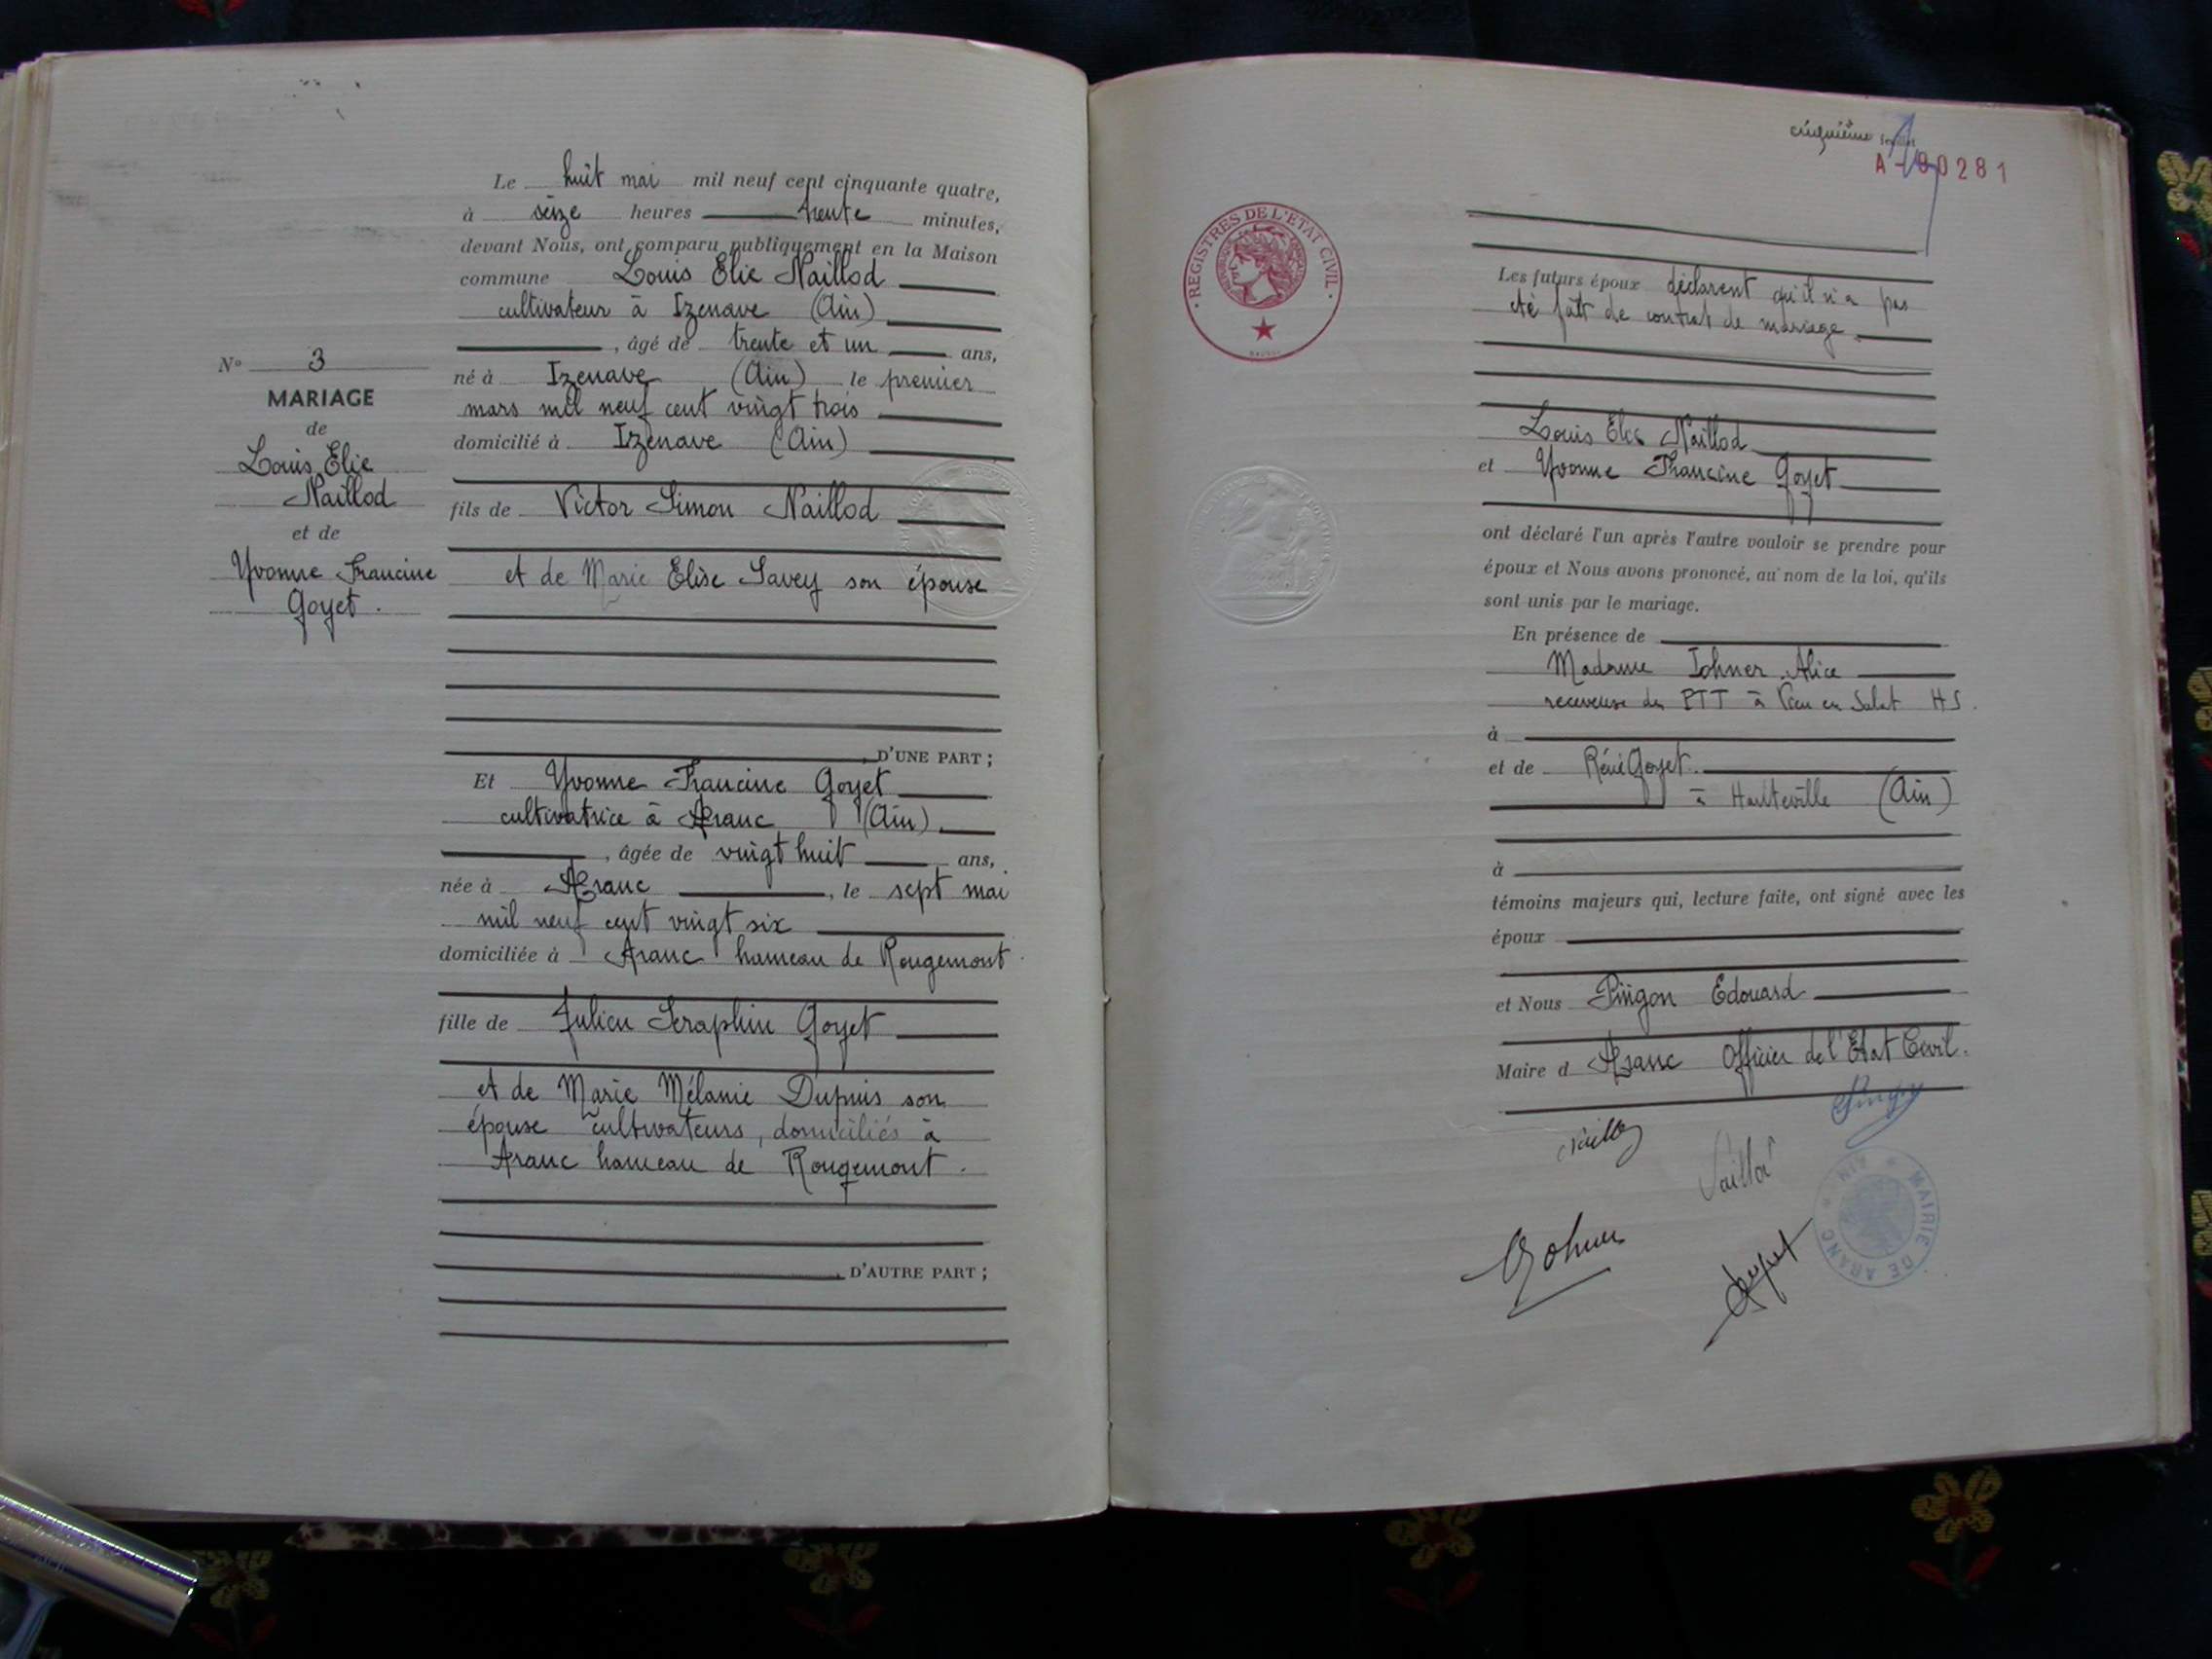 N° 3
MARIAGE
de
Louis Elie
Naillod
et de
Yvonne Francine
Goyet.
Le huit mai mil neuf cent cinquante quatre,
à seize heures trente minutes,
devant Nous, ont comparu publiquement en la Maison
commune Louis Elie Naillod
cultivateur à Izenave (Ain)
, âgé de trente et un ans,
né à Izenave (Ain) le premier
mars mil neuf cent vingt trois
domicilié à Izenave (Ain)
fils de Victor Simon Naillod
et de Marie Elise Savey son épouse
D'UNE PART ;
Et Yvonne Francine Goyet
cultivatrice à Aranc (Ain).
, âgée de vingt huit ans,
née à Aranc , le sept mai
mil neuf cent vingt six
domiciliée à Aranc hameau de Rougemont
fille de Julien Seraphin Goyet
et de Marie Mélanie Dupuis son
épouse cultivateurs, domiciliés à
Aranc hameau de Rougemont.
D'AUTRE PART ;
cinquième feuillet
A - 90281
REGISTRES DE L'ETAT CIVIL
Les futurs époux déclarent qu'il n'a pas
été fait de contrat de mariage.
Louis Elie Naillod
et Yvonne Francine Goyet
ont déclaré l'un après l'autre vouloir se prendre pour
époux et Nous avons prononcé, au nom de la loi, qu'ils
sont unis par le mariage.
En présence de
Madame Johner Alice
receveuse des PTT à en Salat HS.
à
et de René Goyet.
à Hauteville (Ain)
à
témoins majeurs qui, lecture faite, ont signé avec les
époux
et Nous Pingon Edouard
Maire d Aranc Officier de l'Etat Civil.
MAIRIE DE ARANC
AIN